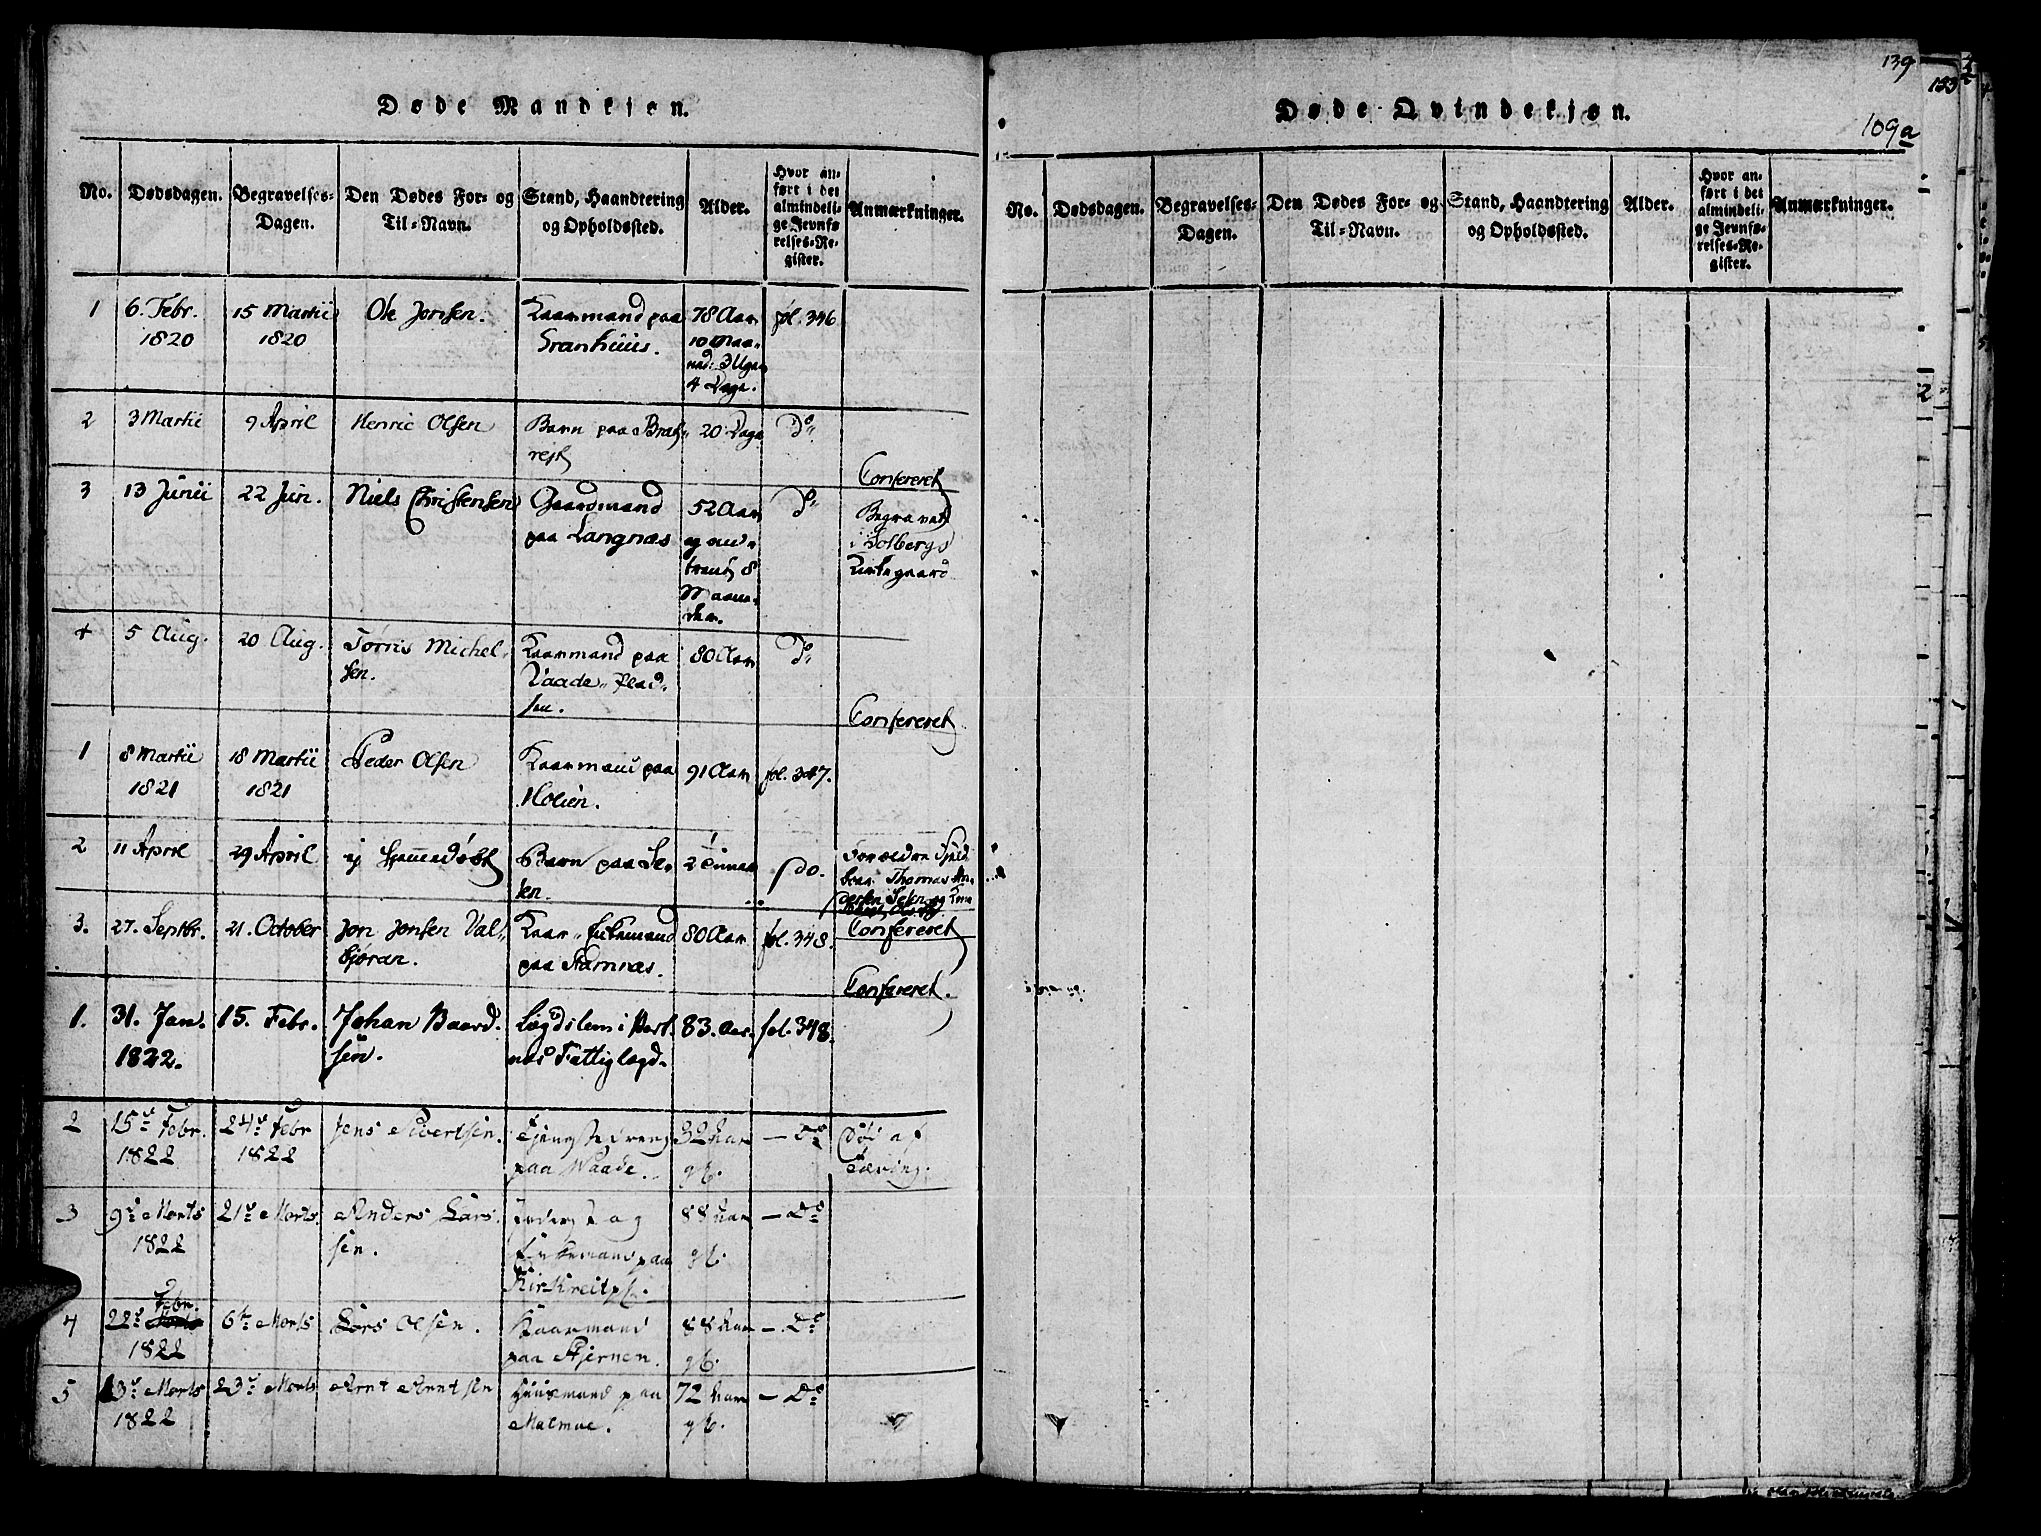 Døde Mandkjøn.
No.
Dødsdagen.
Begravelses-
Dagen.
Den Dødes For- og
Til-Navn.
Stand, Haandtering
og Opholdssted.
Alder.
Hvor an-
ført i det
almindeli-
ge Jevnfø-
relses-Re-
gister.
Anmærkninger.
1
6. Febr.
1820
15 Martii
1820
Ole Jonsen.
Kaarmand paa
Granhuus.
78 Aar
10 Maa-
ned: 3 Uger
4 Dage.
fol. 346
2
3 Martii
9 April
Henric Olsen
Barn paa
20 Dage
Do
Confereret
3
13 Junii
22 Jun.
Niels Christensen
Gaardmand
paa Langnæs
52 Aar
Do
Begravet
i Solbergs
Kirkegaard
4
5 Aug.
20 Aug.
Tørris Michel-
sen.
Kaarmand paa
Vaade-Plad-
sen.
80 Aar
Do
Confereret
1
8 Martii
1821
18 Martii
1821
Peder Olsen
Kaarmand paa
Holien.
91 Aar
fol. 347.
2
11 April
29 April
ej hjemmedøbt
Barn paa Se-
sen.
2 Timer
do.
Forældre
Thomas An-
dersen
3.
27. Septbr.
21. October
Jon Jonsen Val-
bjøran.
Kaar- Enkemand
paa Hamnæs.
80 Aar
fol. 348.
Confereret
Confereret.
1.
31. Jan.
1822.
15. Febr.
Johan Baard-
sen.
Lægdslem i
Fattiglægd.
83. Aar.
fol. 348.
2
15de Febr.
1822
24de Febr
1822
Jens Sivertsen.
Tjenestedreng
paa Waade.
32 Aar
gl.
— Do
Død af
Tæring.
3
9de Marts
1822
21de Marts.
Anders Lars-
sen.
og
Enkemand paa
Kirkreitpl.
88 Aar
gl.
— Do
4
22de Febr.
1822
6te Marts
Lars Olsen.
Kaarmand
paa Stjernen.
88 Aar
gl.
— Do
5
13de Marts
1822
23de Marts
Arnt Arntsen
Huusmand paa
Malmoe.
72 Aar
gl.
— Do
139
133
109a
Døde Qvindekjøn.
No.
Dødsdagen.
Begravelses-
Dagen.
Den Dødes For- og
Til-Navn.
Stand, Haandtering
og Opholdssted.
Alder.
Hvor an-
ført i det
almindeli-
ge Jevnfø-
relses-Re-
gister.
Anmærkninger.
2